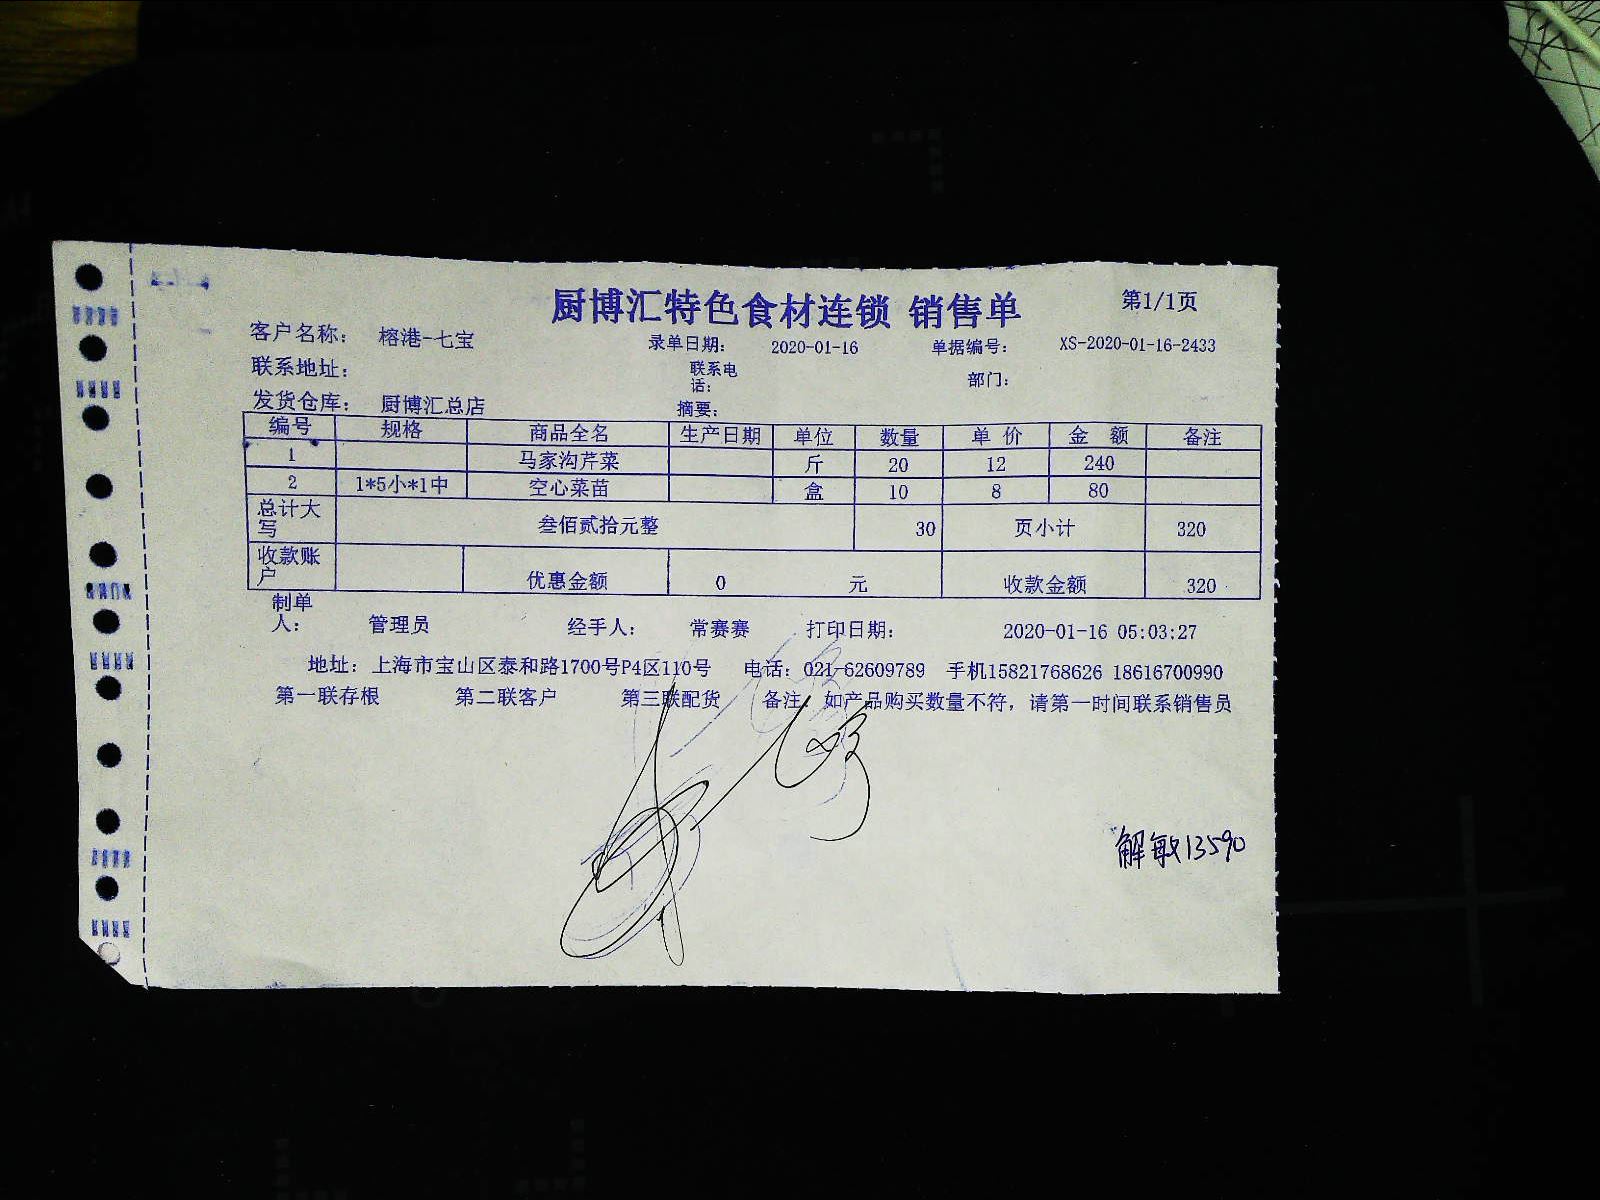 厨博汇特色食材连锁 销售单 第1/1页
客户名称： 榕港-七宝 录单日期： 2020-01-16 单据编号： XS-2020-01-16-2433
联系地址： 联系电话： 部门：
发货仓库： 厨博汇总店 摘要：
编号 规格 商品全名 生产日期 单位 数量 单 价 金 额 备注
1 马家沟芹菜 斤 20 12 240
2 1*5小*1中 空心菜苗 盒 10 8 80
总计大写 叁佰贰拾元整 30 页小计 320
收款账户 优惠金额 0 元 收款金额 320
制单人： 管理员 经手人： 常赛赛 打印日期： 2020-01-16 05:03:27
地址：上海市宝山区泰和路1700号P4区110号 电话：021-62609789 手机15821768626 18616700990
第一联存根 第二联客户 第三联配货 备注：如产品购买数量不符，请第一时间联系销售员
解敏13590